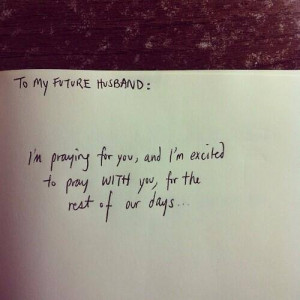 To My FUTURE HUSBAND:
I'm praying for you, and I'm excited
to pray WITH you, for the
rest of our days...